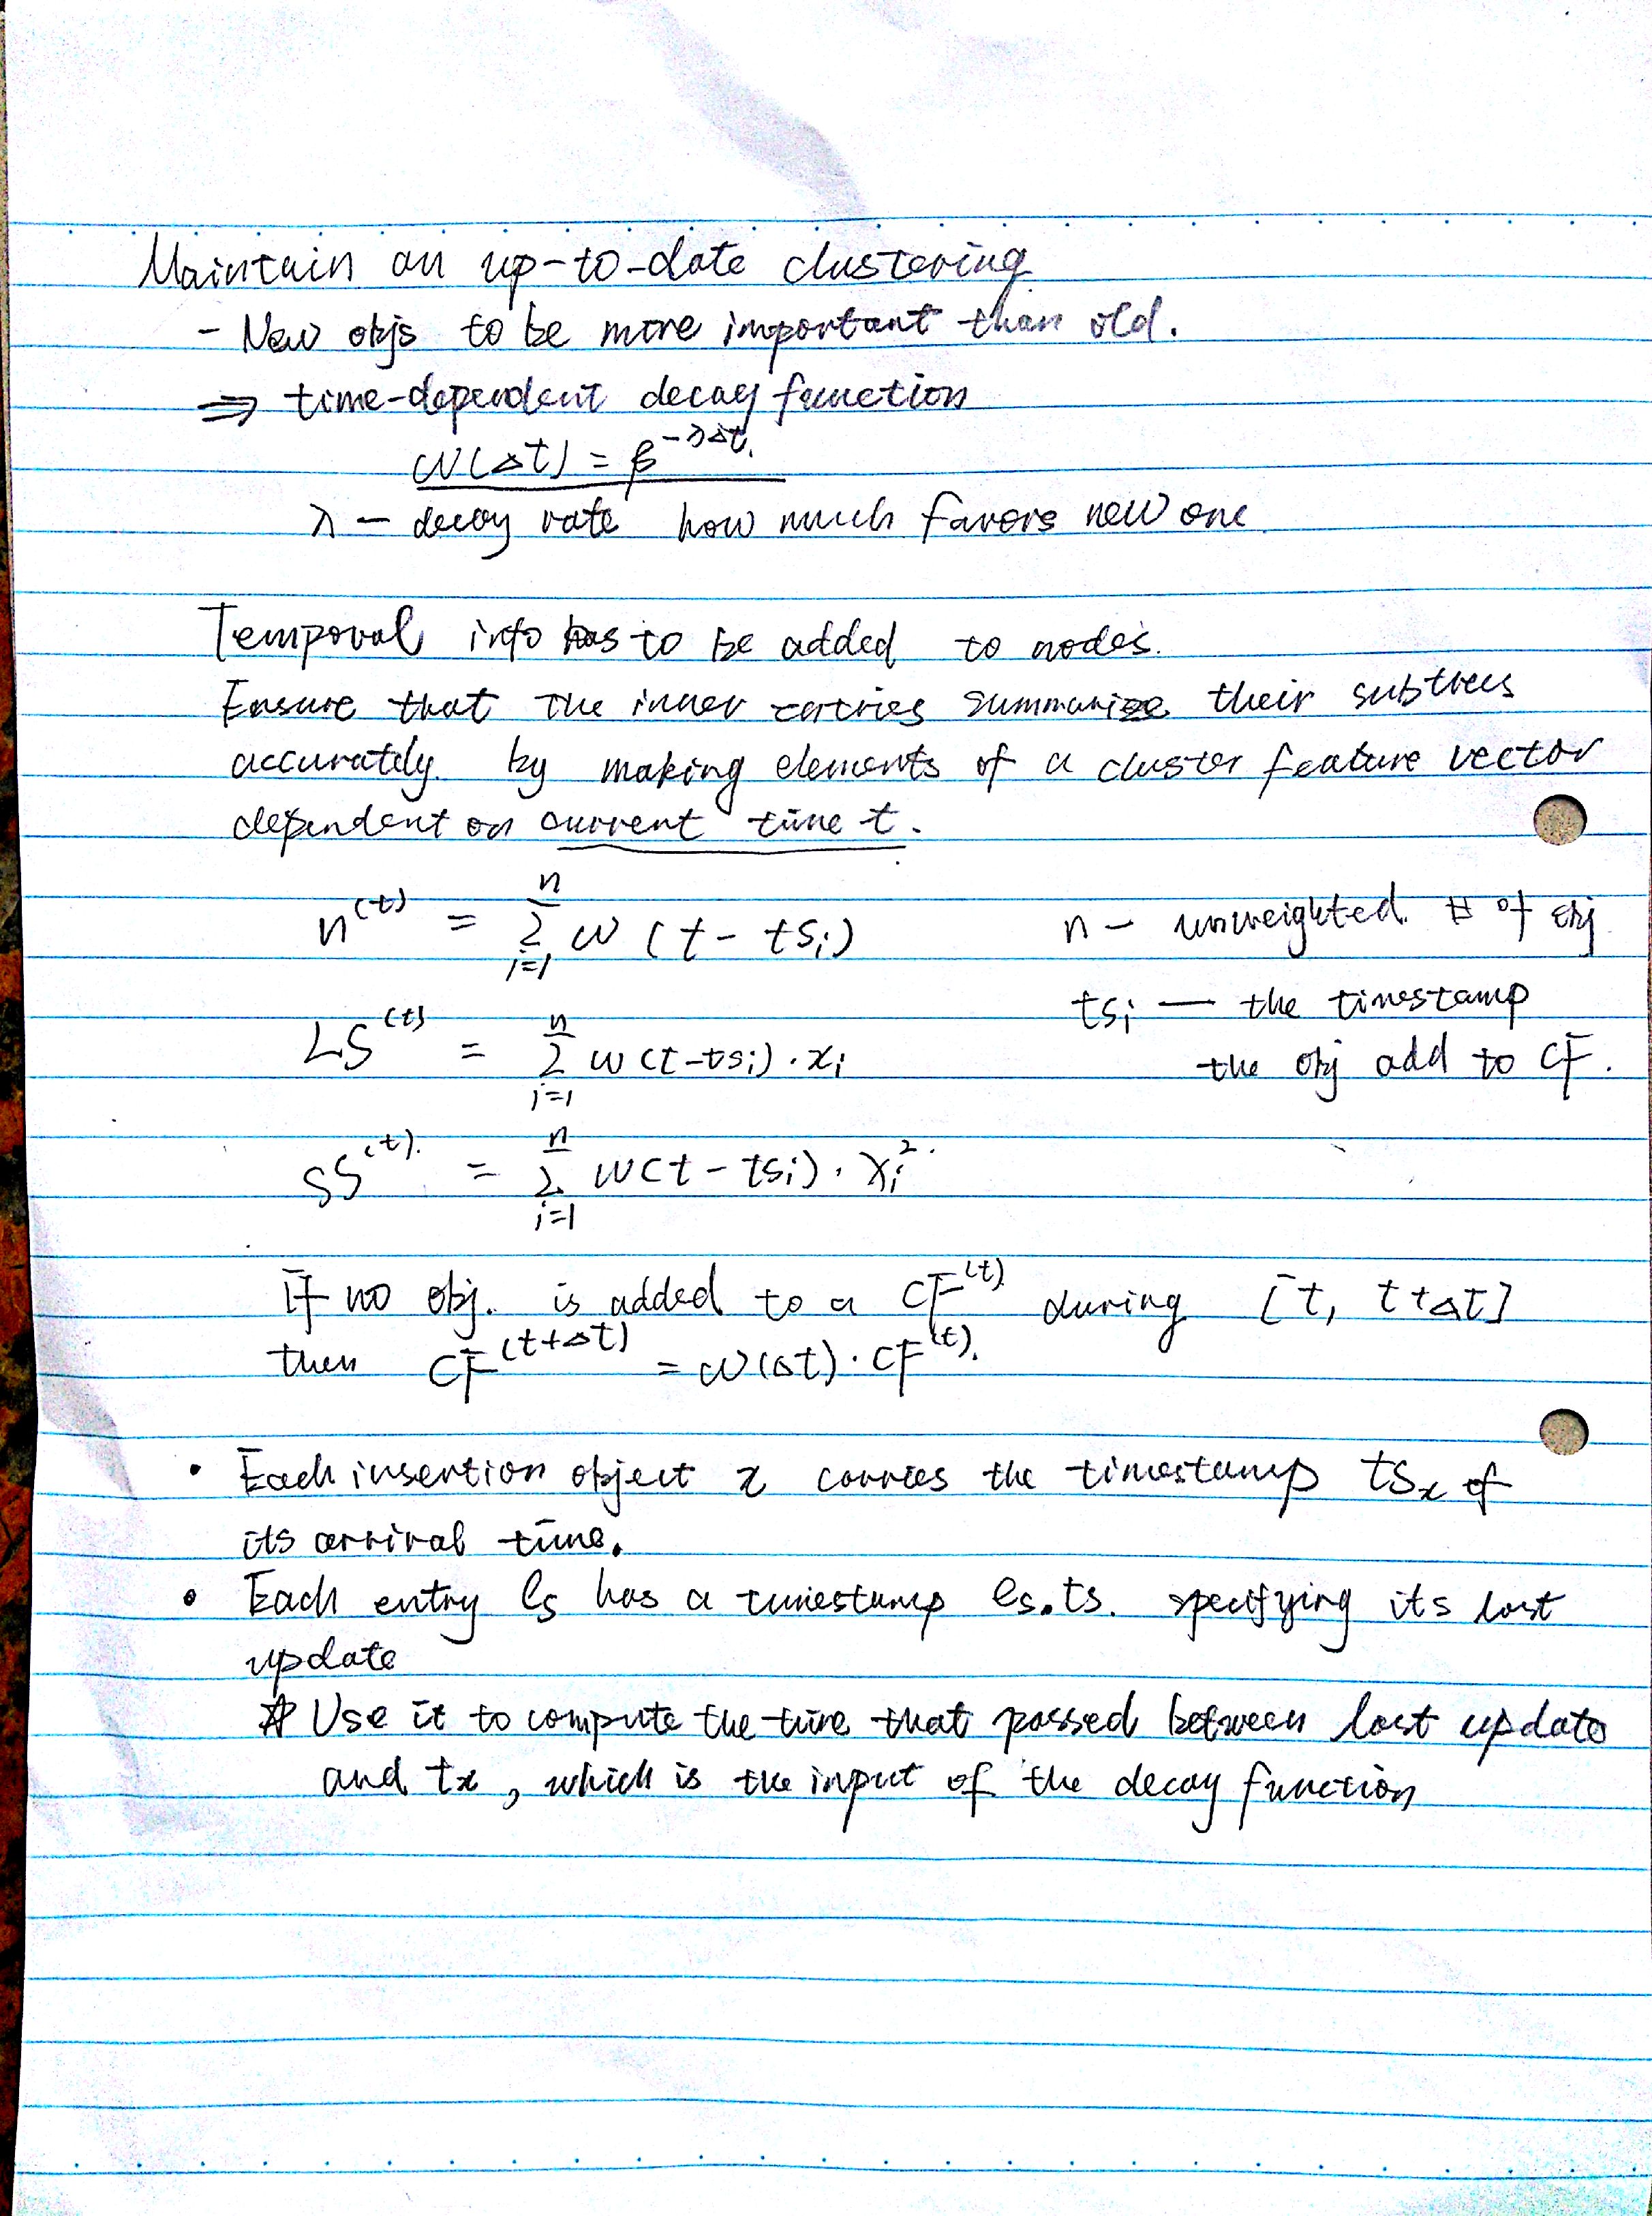 Maintain an up-to-date clustering
- New objs to be more important than old.
⇒ time-dependent decay function
w(Δt) = β^-λΔt.
λ — decay rate how much favors new one
Temporal info has to be added to nodes.
Ensure that the inner entries summarize their subtrees
accurately. by making elements of a cluster feature vector
dependent on current time t.
n^(t) = Σ_{i=1}^{n} w (t - ts_i) n — unweighted. # of obj
LS^(t) = Σ_{i=1}^{n} w(t-ts_i) · x_i ts_i — the timestamp
the obj add to CF.
SS^(t). = Σ_{i=1}^{n} w(t - ts_i) · x_i^2.
If no obj. is added to a CF^(t) during [t, t+Δt]
then CF^(t+Δt) = w(Δt) · CF^(t).
• Each insertion object x carries the timestamp ts_x of
its arrival time.
• Each entry e_s has a timestamp e_s.ts. specifying its last
update
☆ Use it to compute the time that passed between last update
and t_x, which is the input of the decay function